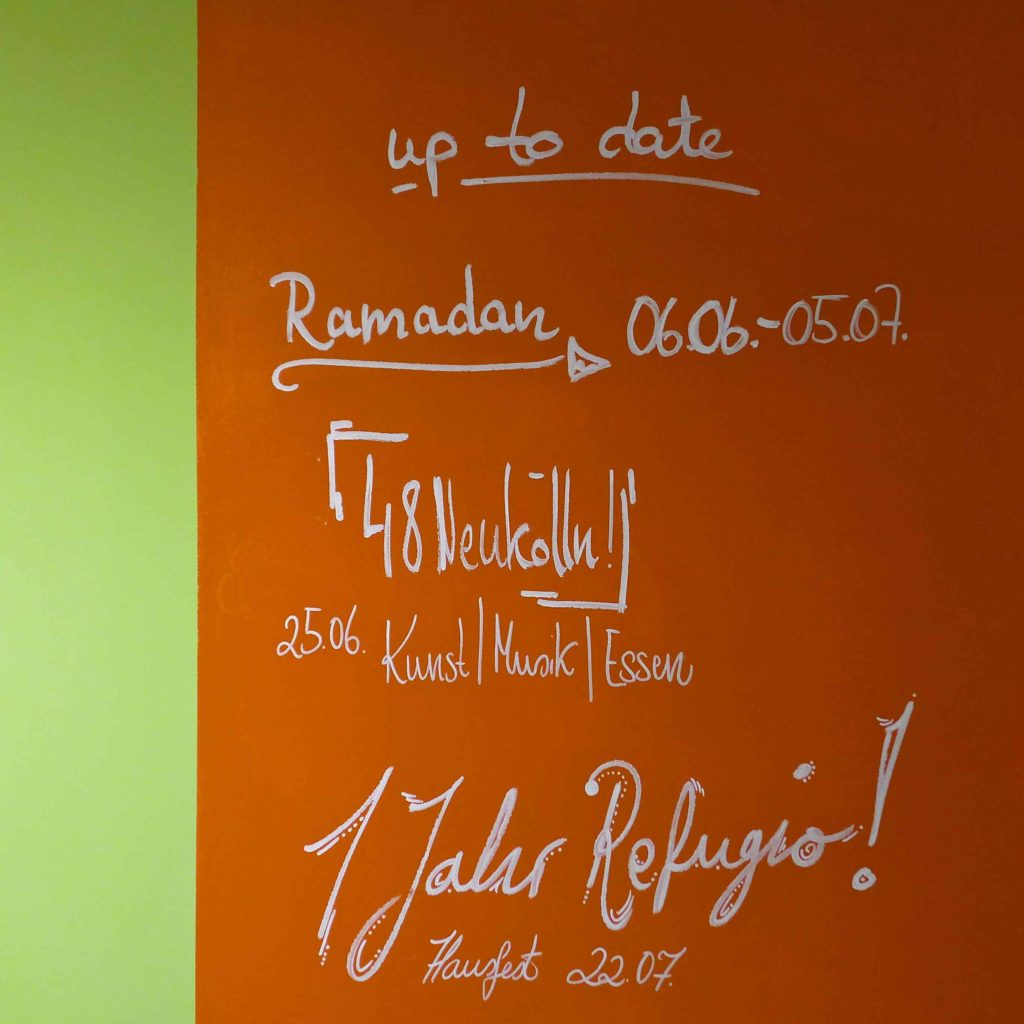 up to date
Ramadan 06.06.-05.07.
48 Neukölln!
25.06. Kunst | Musik | Essen
1 Jahr Refugio!
Hausfest 22.07.